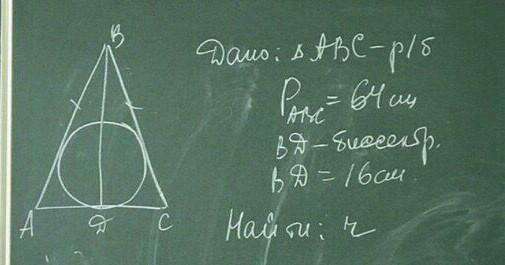 B
Дано: △ABC - р/б
P ABC = 64 см
BД - биссектр.
BД = 16 см.
A Д C
Найти: r